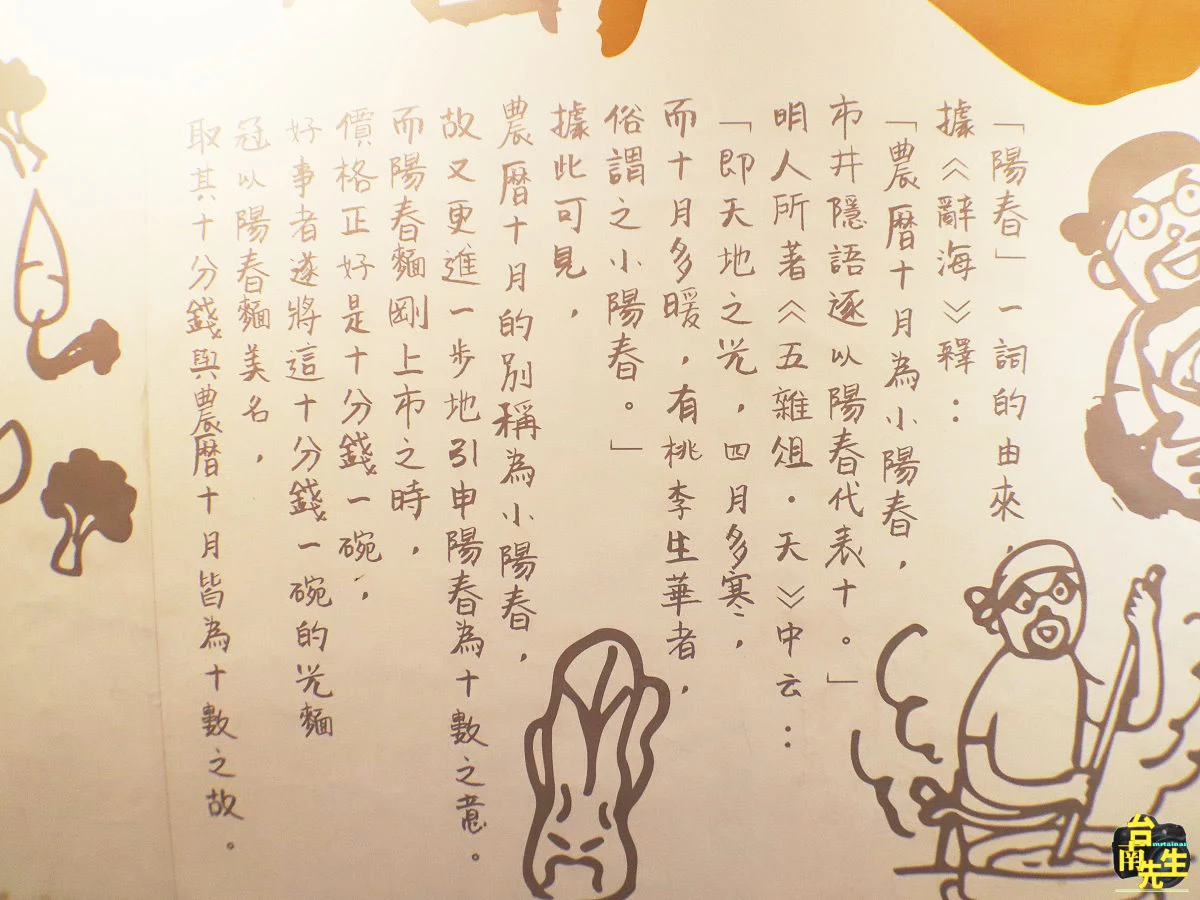 「陽春」一詞的由來，
據《辭海》釋：
「農曆十月為小陽春，
市井隱語逐以陽春代表十。」
明人所著《五雜俎·天》中云：
「即天地之光，四月多寒，
而十月多暖，有桃李生華者，
俗謂之小陽春。」
據此可見，
農曆十月的別稱為小陽春，
故又更進一步地引申陽春為十數之意。
而陽春麵剛上市之時，
價格正好是十分錢一碗，
好事者遂將這十分錢一碗的光麵
冠以陽春麵美名，
取其十分錢與農曆十月皆為十數之故。
台南先生
mrtainan